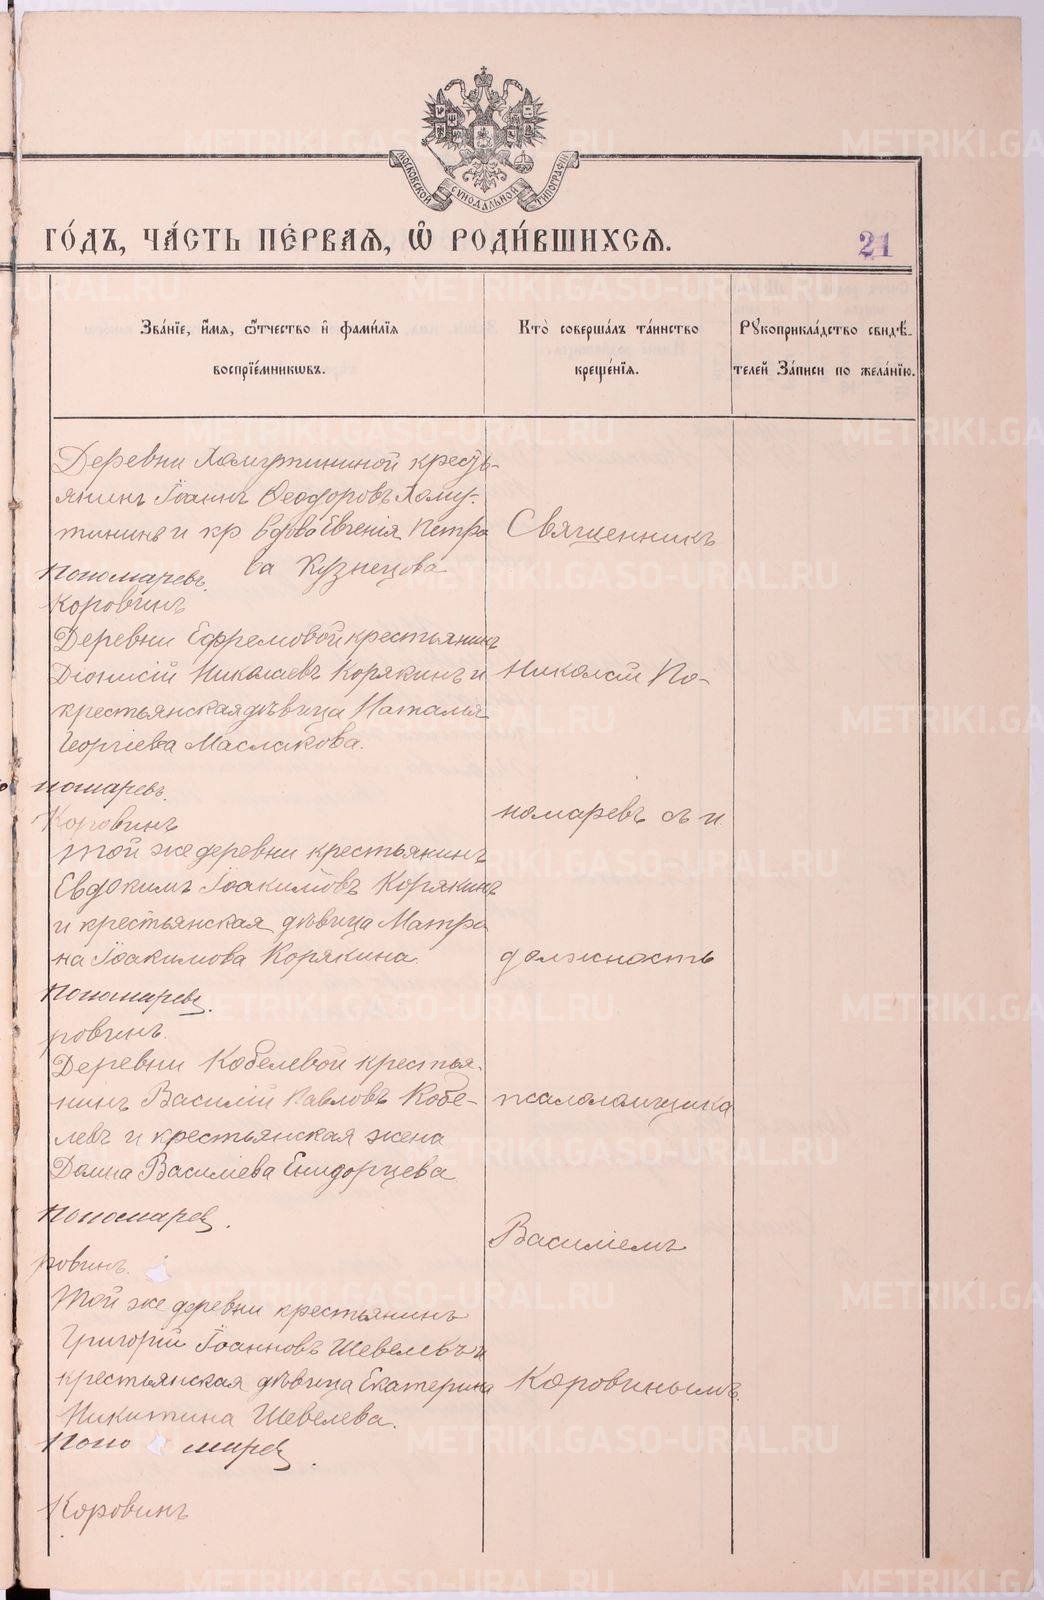 МОСКОВСКОЙ СѴНОДАЛЬНОЙ ТИПОГРАФІИ
ГО́ДЪ, ЧА́СТЬ ПЕ́РВАЯ, Ѽ РОДИ́ВШИХСЯ.
21
Зва́нїе, и҆́мя, ѻ҆́тчество и҆ фами́лїя
воспрїе́мникѡвъ.
Кто̀ соверша́лъ та́инство
креще́нїя.
Рꙋкоприкла́дство свидѣ́-
телей За́писи по жела́нїю.
Деревни Хомутининой кресть-
янинъ Іоаннъ Ѳеодоровъ Хому-
тининъ и кр вдова Евгенія Петро
ва Кузнецова
Священникъ
Пономаревъ.
Коровинъ
Деревни Ефремовой крестьянинъ
Діонисій Николаевъ Корякинъ и
крестьянская дѣвица Наталья
Георгіева Маслакова.
Николай По-
номаревъ.
Коровинъ
номаревъ съ и
Той же деревни крестьянинъ
Евдокимъ Іоакимовъ Корякинъ
и крестьянская дѣвица Матро
на Іоакимова Корякина.
должность
Пономарев.
ровинъ.
Деревни Кобелевой крестья-
нинъ Василій Павловъ Кобе-
левъ и крестьянская жена
Домна Василіева
псаломщика
Пономарев.
ровинъ.
Василіемъ
Той же деревни крестьянинъ
Григорій Іоанновъ Шевелевъ и
крестьянская дѣвица Екатерина
Никитина Шевелева.
Коровинымъ.
Поно марев.
Коровинъ
METRIKI.GASO-URAL.RU